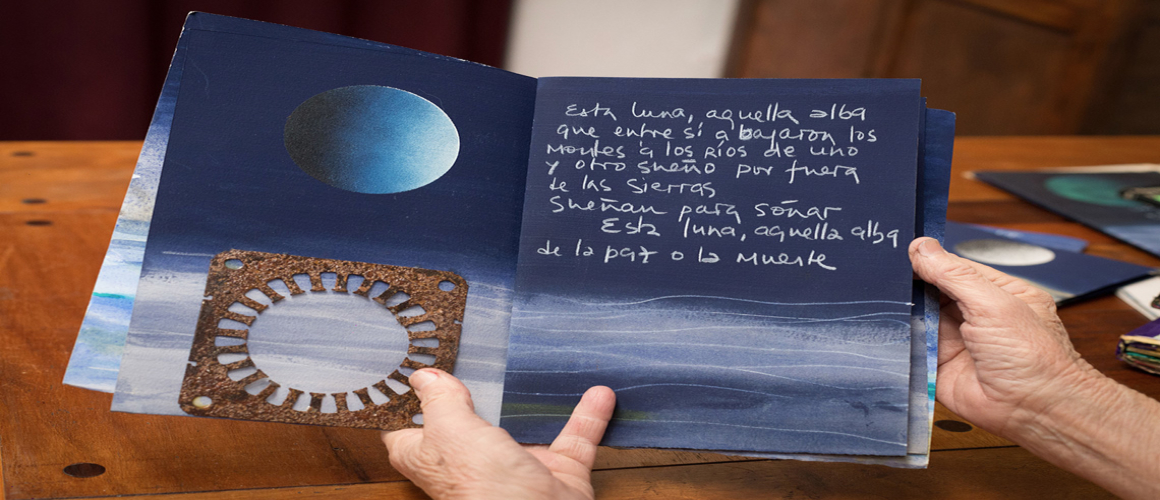 Esta luna, aquella alba
que entre sí abajaron los
montes a los Ríos de uno
y otro sueño por fuera
de las sierras
Sueñan para soñar
Esta luna, aquella alba
de la paz o la muerte